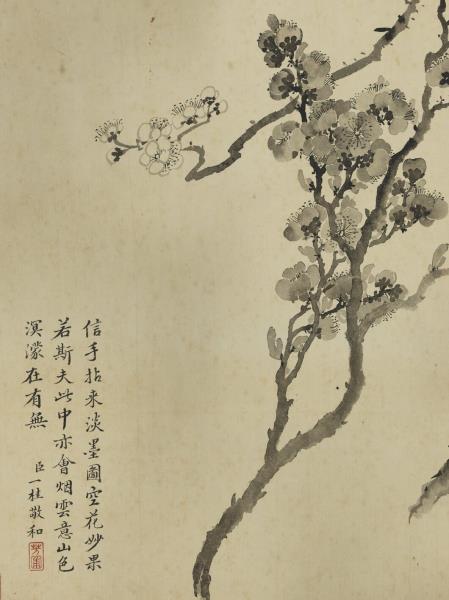 信手拈来淡墨圖空花妙果
若斯夫此中亦會烟雲意山色
溟濛在有無
臣一桂敬和